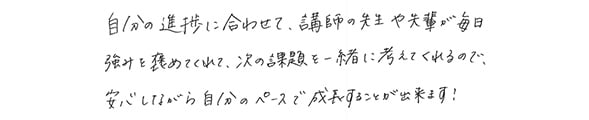 自分の進捗に合わせて、講師の先生や先輩が毎日
強みを褒めてくれて、次の課題を一緒に考えてくれるので、
安心しながら自分のペースで成長することが出来ます!